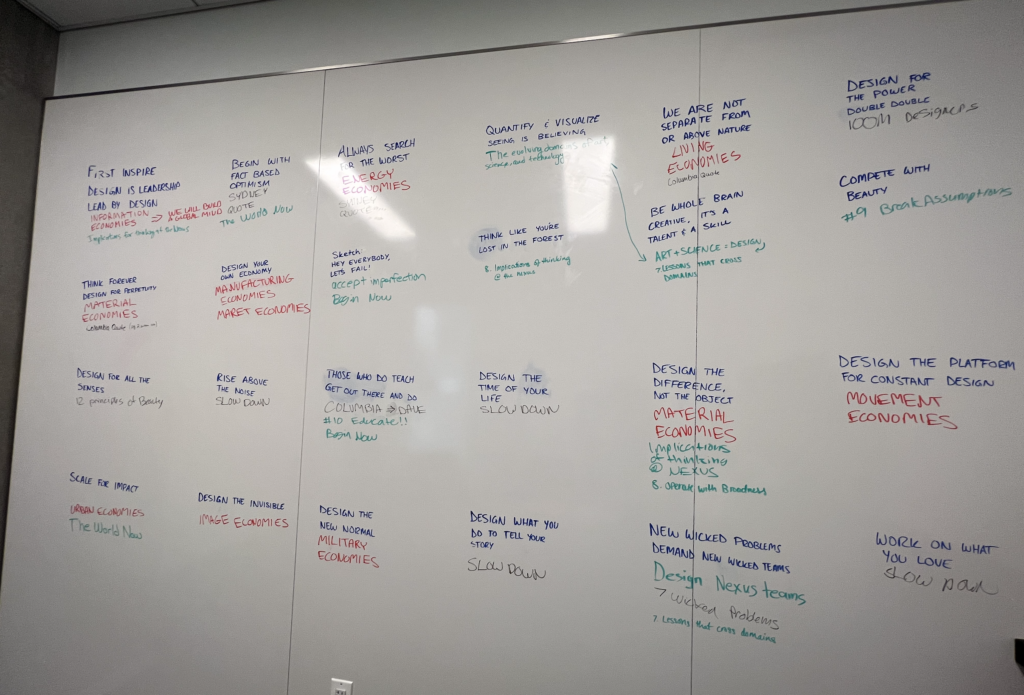 FIRST INSPIRE
DESIGN IS LEADERSHIP
LEAD BY DESIGN
INFORMATION
ECONOMIES → WE WILL BUILD
A GLOBAL MIND
Implications for thinking at the Nexus
BEGIN WITH
FACT BASED
OPTIMISM
SYDNEY
QUOTE
The World Now
ALWAYS SEARCH
FOR THE WORST
ENERGY
ECONOMIES
QUOTE
QUANTIFY & VISUALIZE
SEEING IS BELIEVING
The evolving domains of art,
science, and technology
WE ARE NOT
SEPARATE FROM
OR ABOVE NATURE
LIVING
ECONOMIES
Columbia Quote
DESIGN FOR
THE POWER
DOUBLE DOUBLE
100M DESIGNERS
THINK FOREVER
DESIGN FOR PERPETUITY
MATERIAL
ECONOMIES
Columbia Quote
DESIGN YOUR
OWN ECONOMY
MANUFACTURING
ECONOMIES
MARET ECONOMIES
Sketch:
HEY EVERYBODY,
LETS FAIL!
accept imperfection
Begin Now
THINK LIKE YOU'RE
LOST IN THE FOREST
8. Implications of thinking
@ the nexus
BE WHOLE BRAIN
CREATIVE. IT'S A
TALENT & A SKILL
ART + SCIENCE = DESIGN
7 LESSONS THAT CROSS
DOMAINS
COMPETE WITH
BEAUTY
#9 Break Assumptions
DESIGN FOR ALL THE
SENSES
12 principles of Beauty
RISE ABOVE
THE NOISE
SLOW DOWN
THOSE WHO DO TEACH
GET OUT THERE AND DO
COLUMBIA → DAVE
#10 Educate!!
Begin Now
DESIGN THE
TIME OF YOUR
LIFE
SLOW DOWN
DESIGN THE
DIFFERENCE,
NOT THE OBJECT
MATERIAL
ECONOMIES
Implications
of thinking
@ NEXUS
8. operate with Broadness
DESIGN THE PLATFORM
FOR CONSTANT DESIGN
MOVEMENT
ECONOMIES
SCALE FOR IMPACT
URBAN ECONOMIES
The World Now
DESIGN THE INVISIBLE
IMAGE ECONOMIES
DESIGN THE
NEW NORMAL
MILITARY
ECONOMIES
DESIGN WHAT YOU
DO TO TELL YOUR
STORY
SLOW DOWN
NEW WICKED PROBLEMS
DEMAND NEW WICKED TEAMS
Design Nexus teams
7 Wicked Problems
7 Lessons that cross domains
WORK ON WHAT
YOU LOVE
SLOW DOWN